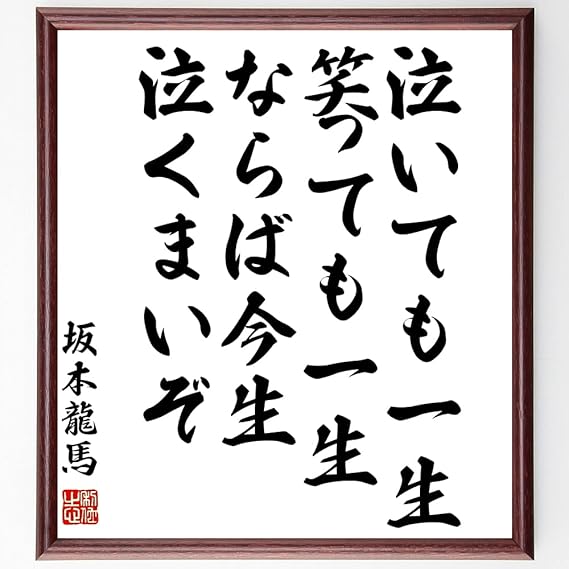 泣いても一生
笑っても一生
ならば今生
泣くまいぞ
坂本龍馬